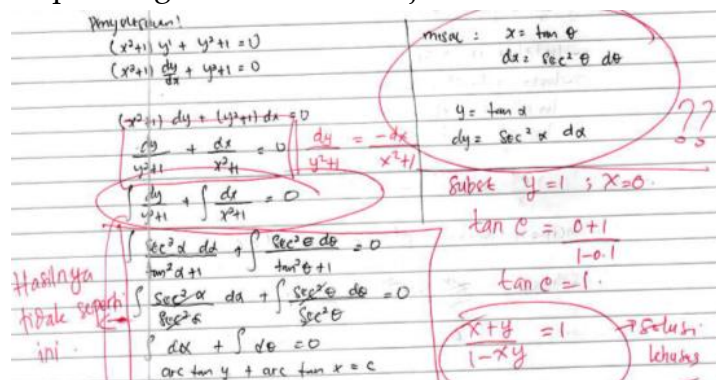 Penyelesaian!
(x²+1) y' + y²+1 = 0
(x²+1) dy/dx + y²+1 = 0
(x²+1) dy + (y²+1) dx = 0
dy/y²+1 + dx/x²+1 = 0
dy/y²+1 = -dx/x²+1
∫ dy/y²+1 + ∫ dx/x²+1 = 0
∫ sec²α dα/tan²α+1 + ∫ sec²θ dθ/tan²θ+1 = 0
∫ sec²α/sec²α dα + ∫ sec²θ dθ/sec²θ = 0
∫ dα + ∫ dθ = 0
arc tan y + arc tan x = c
Hasilnya
tidak seperti
ini.
misal : x = tan θ
dx = sec² θ dθ
y = tan α
dy = sec² α dα
??
Subst y = 1 ; x = 0.
tan c = 0+1/1-0.1
tan c = 1.
x+y/1-xy = 1
→ Solusi
khusus